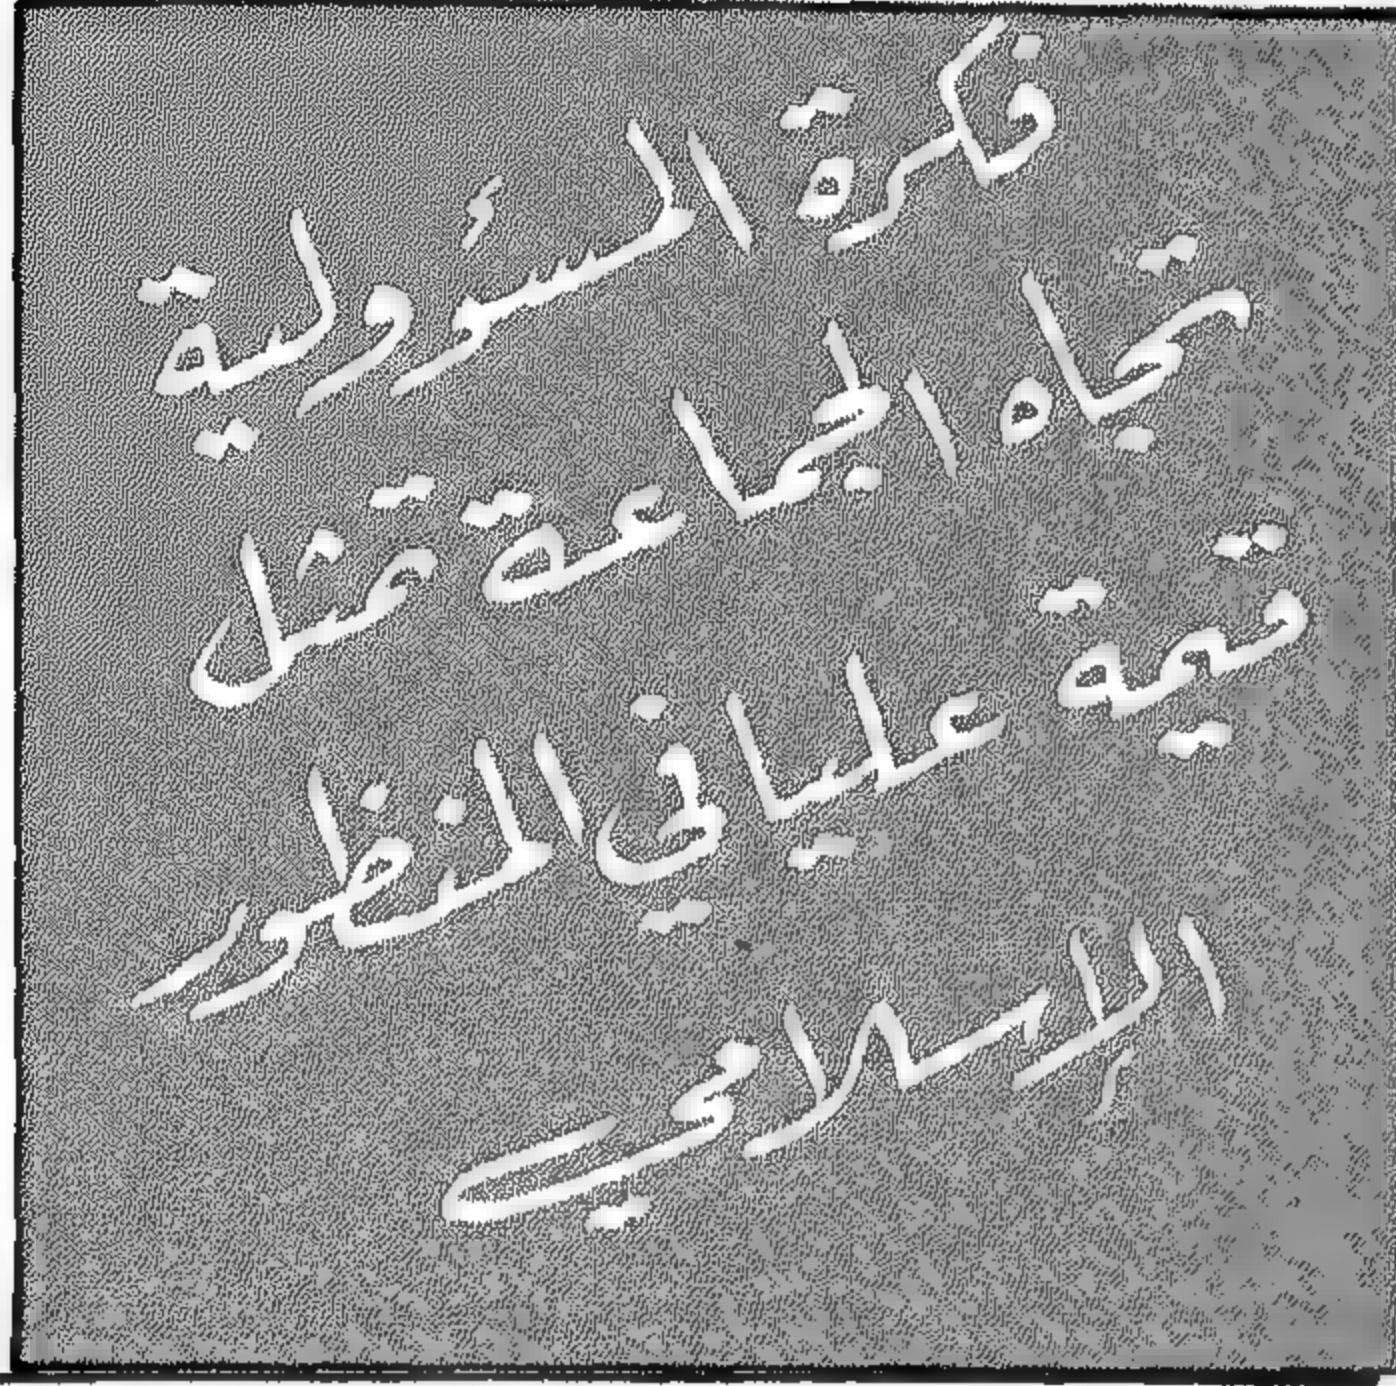 فكرة المسؤولية
تجاه الجماعة تمثل
قيمة عليا في المنظور
الإسلامي